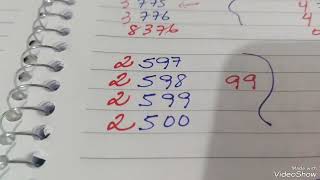 3 775
3 776
8376
2 597
2 598 99
2 599
2 500
Made with
VideoShow